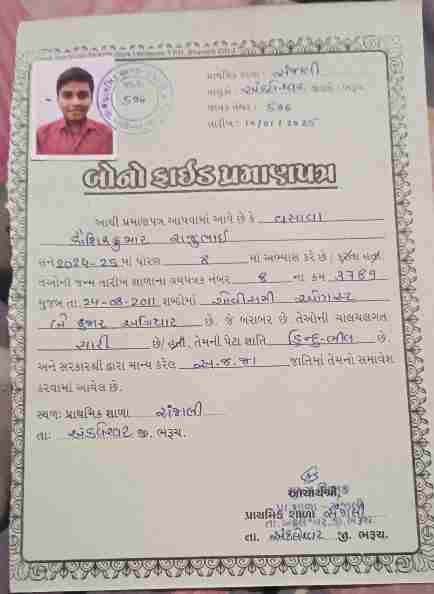 પ્રાથમિક શાળા : સંજાલી
તાલુકો અંકલેશ્વર જીલ્લો : ભરૂચ
જાવક નંબર : 596
તારીખ : 10/01/2025
596
બોનોફાઈડ પ્રમાણપત્ર
આથી પ્રમાણપત્ર આપવામાં આવે છે કે વસાવા
કૌશિકકુમાર રાજુભાઈ
સને 2024-25 માં ધોરણ 8 માં અભ્યાસ કરે છે / કરતા હતા.
તેઓની જન્મ તારીખ શાળાના વયપત્રક નંબર 8 ના ક્રમ 3789
મુજબ તા. 24-08-2011 શબ્દોમાં ચોવીસમી ઓગસ્ટ
બે હજાર અગિયાર છે. જે બરાબર છે તેઓની ચાલચલગત
સારી છે/હતી, તેમની પેટા જાતિ હિન્દુ-ભીલ છે.
અને સરકારશ્રી દ્વારા માન્ય કરેલ અ.જ.જા જાતિમાં તેમનો સમાવેશ
કરવામાં આવેલ છે.
સ્થળ: પ્રાથમિક શાળા સંજાલી
તા: અંકલેશ્વર જી. ભરૂચ.
આચાર્યશ્રી,
પ્રાથમિક શાળા સંજાલી
તા. અંકલેશ્વર જી. ભરૂચ.